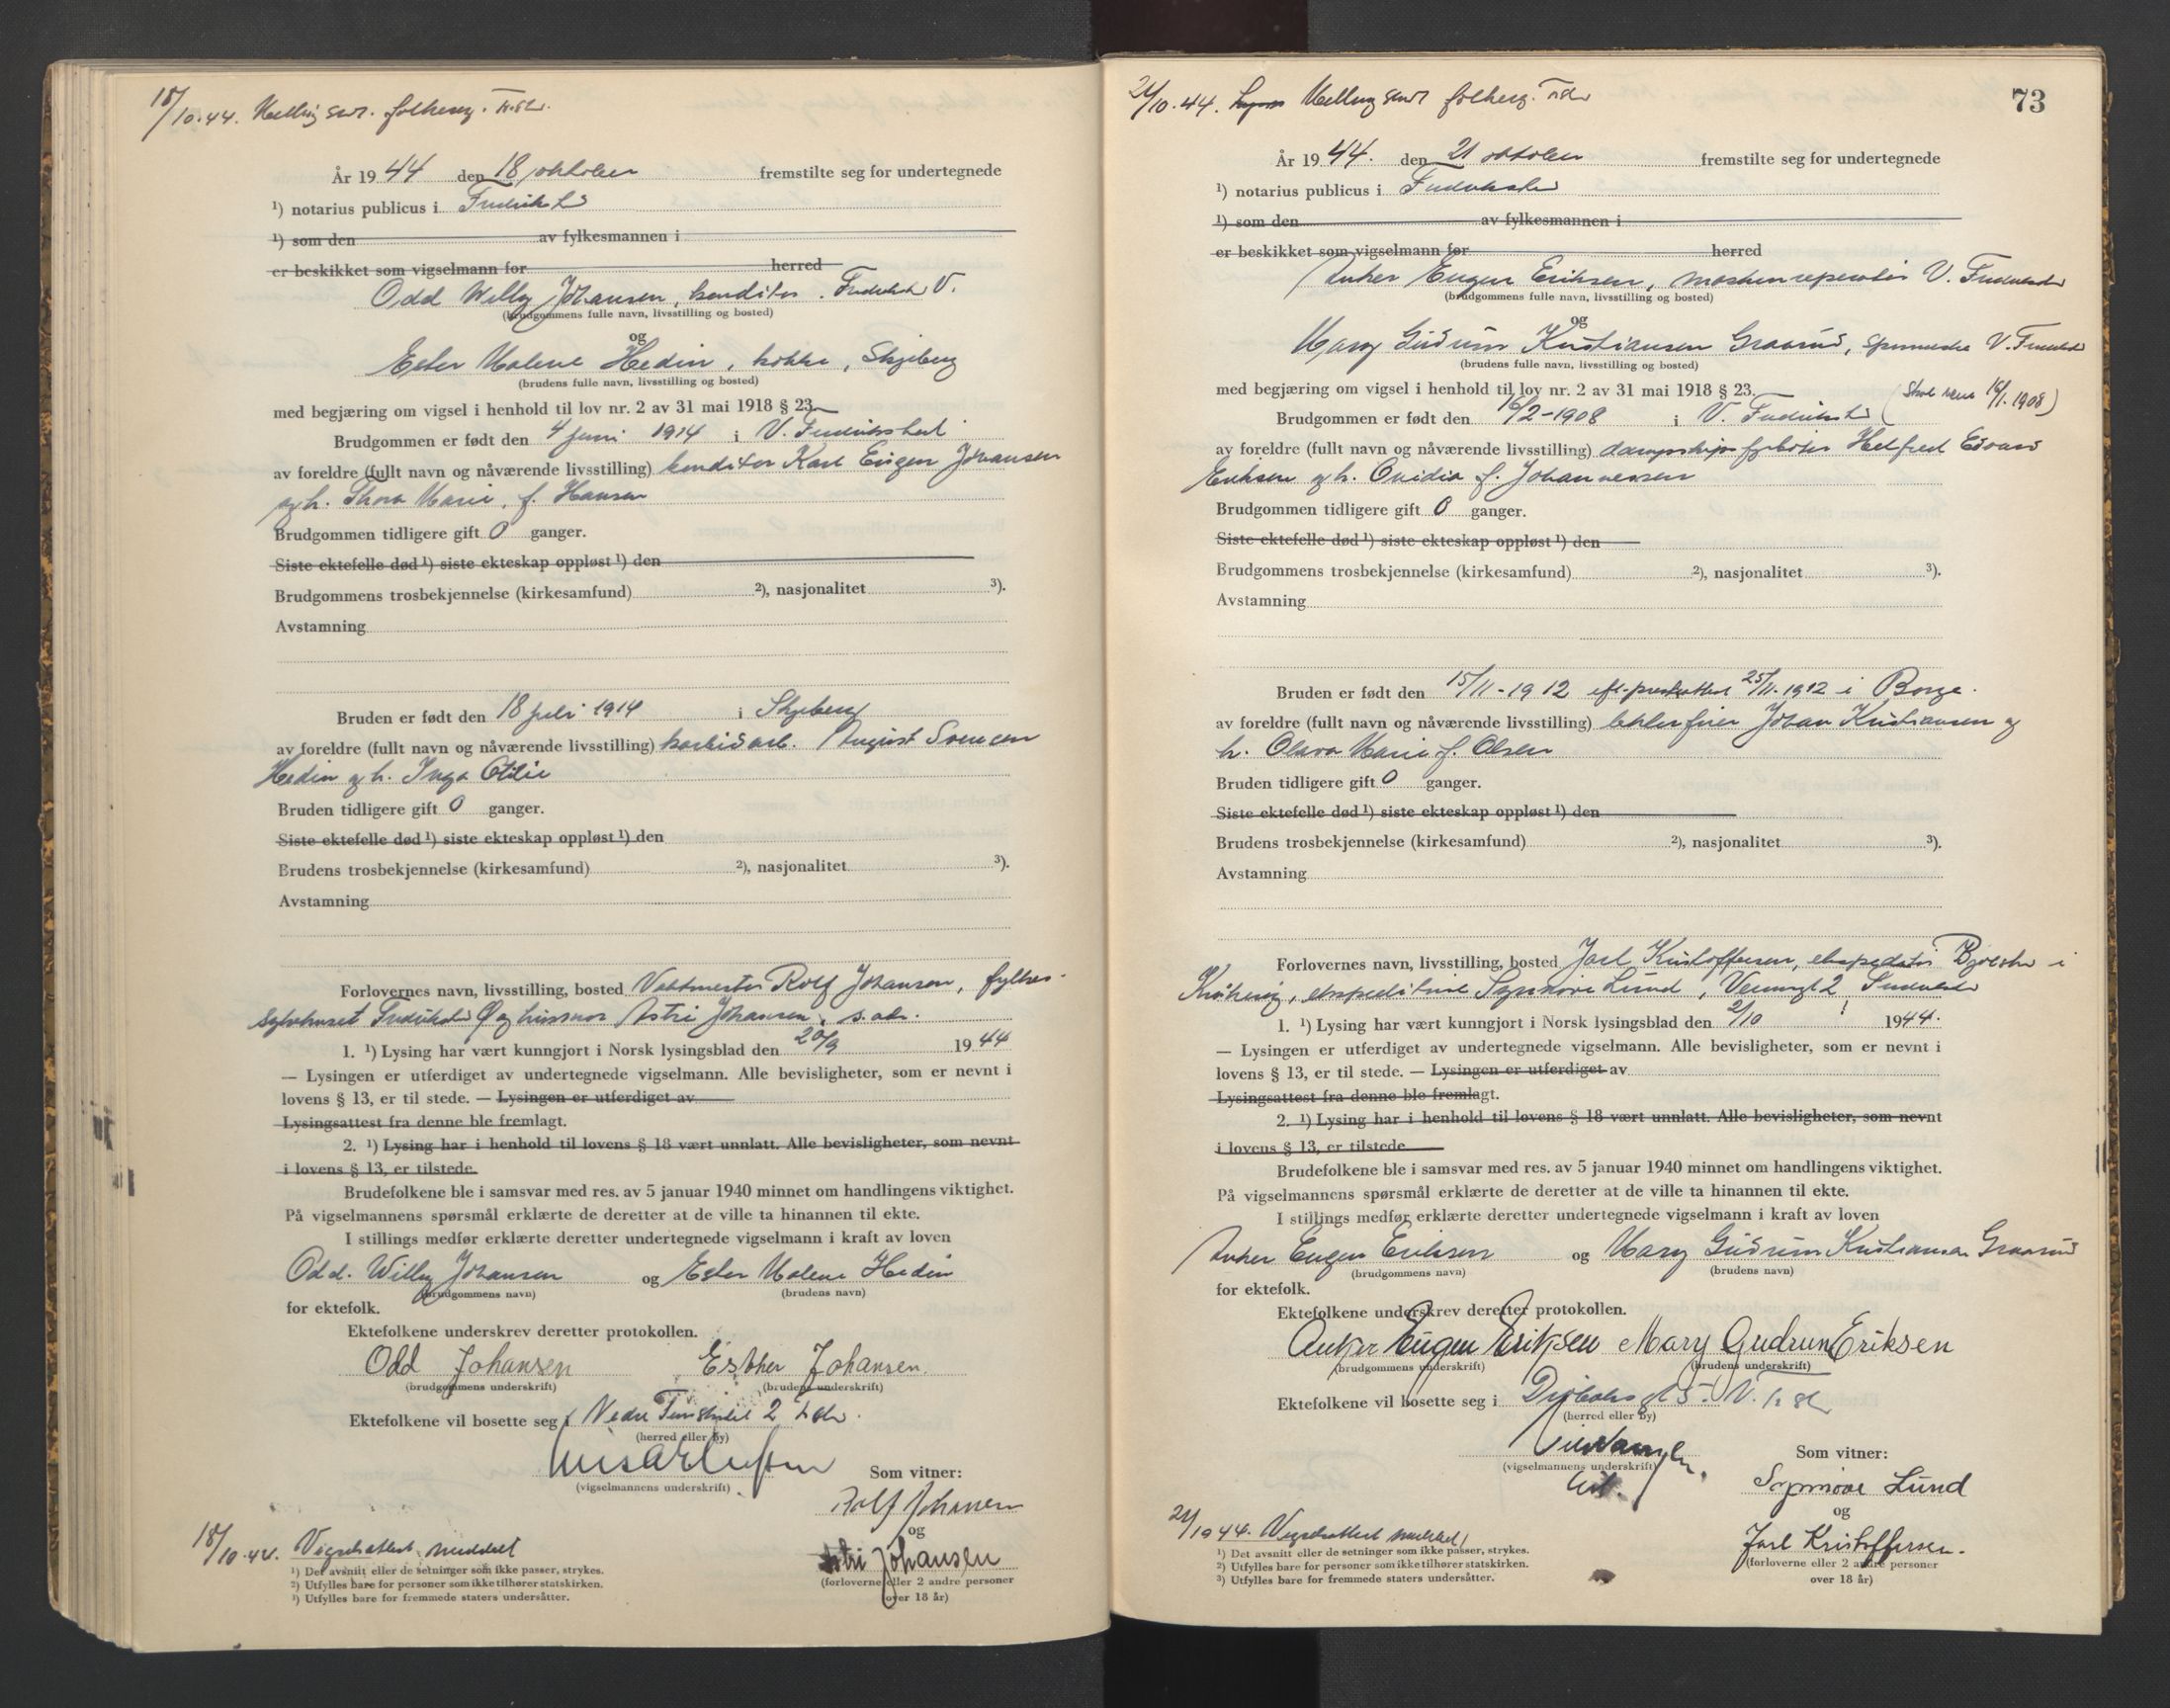 18/10.44. Melding sendt folkereg.
År 1944 den 18 oktober fremstilte seg for undertegnede
¹) notarius publicus i Fredrikstad
¹) som den av fylkesmannen i
er beskikket som vigselmann for herred
Odd Willy Johansen, konditor, Fredrikstad V.
(brudgommens fulle navn, livsstilling og bosted)
og
Ester Malene Hedin, kokke, Skjeberg
(brudens fulle navn, livsstilling og bosted)
med begjæring om vigsel i henhold til lov nr. 2 av 31 mai 1918 § 23.
Brudgommen er født den 4 juni 1914 i V. Fredrikstad
av foreldre (fullt navn og nåværende livsstilling) konditor Karl Eugen Johansen
og h. Thora Marie, f. Hansen
Brudgommen tidligere gift 0 ganger.
Siste ektefelle død ¹) siste ekteskap oppløst ¹) den
Brudgommens trosbekjennelse (kirkesamfund) ²), nasjonalitet ³).
Avstamning
Bruden er født den 18 juli 1914 i Skjeberg
av foreldre (fullt navn og nåværende livsstilling) karbidarb. August Svensen
Hedin og h. Inga Otilie
Bruden tidligere gift 0 ganger.
Siste ektefelle død ¹) siste ekteskap oppløst ¹) den
Brudens trosbekjennelse (kirkesamfund) ²), nasjonalitet ³).
Avstamning
Forlovernes navn, livsstilling, bosted Vaktmester Rolf Johansen, fylkes-
sykehuset Fredrikstad og husmor Astri Johansen, s. adr.
1. ¹) Lysing har vært kunngjort i Norsk lysingsblad den 20/9 1944
— Lysingen er utferdiget av undertegnede vigselmann. Alle bevisligheter, som er nevnt i
lovens § 13, er til stede. — Lysingen er utferdiget av
Lysingsattest fra denne ble fremlagt.
2. ¹) Lysing har i henhold til lovens § 18 vært unnlatt. Alle bevisligheter, som nevnt
i lovens § 13, er tilstede.
Brudefolkene ble i samsvar med res. av 5 januar 1940 minnet om handlingens viktighet.
På vigselmannens spørsmål erklærte de deretter at de ville ta hinannen til ekte.
I stillings medfør erklærte deretter undertegnede vigselmann i kraft av loven
Odd. Willy Johansen og Ester Malene Hedin
(brudgommens navn) (brudens navn)
for ektefolk.
Ektefolkene underskrev deretter protokollen.
Odd Johansen Esther Johansen.
(brudgommens underskrift) (brudens underskrift)
Ektefolkene vil bosette seg i Nedre
(herred eller by)
(vigselmannens underskrift)
Som vitner:
Rolf Johansen
og
Astri Johansen
(forloverne eller 2 andre personer
over 18 år)
18/10.44. Vigselsattest meddelt
¹) Det avsnitt eller de setninger som ikke passer, strykes.
²) Utfylles bare for personer som ikke tilhører statskirken.
³) Utfylles bare for fremmede staters undersåtter.
73
21/10.44. Melding sendt folkereg.
År 1944. den 21 oktober fremstilte seg for undertegnede
¹) notarius publicus i Fredrikstad
¹) som den av fylkesmannen i
er beskikket som vigselmann for herred
Anker Eugen Eriksen, maskinreparatør V. Fredrikstad
(brudgommens fulle navn, livsstilling og bosted)
og
Mary Gudrun Kristiansen Graarud, V. Fredrikstad
(brudens fulle navn, livsstilling og bosted)
med begjæring om vigsel i henhold til lov nr. 2 av 31 mai 1918 § 23.
(skal være 16/1. 1908)
Brudgommen er født den 16/2-1908 i V. Fredrikstad
av foreldre (fullt navn og nåværende livsstilling) dampskipsfyrbøter Helfred Edvard
Eriksen og h. Ovidia f. Johannessen
Brudgommen tidligere gift 0 ganger.
Siste ektefelle død ¹) siste ekteskap oppløst ¹) den
Brudgommens trosbekjennelse (kirkesamfund) ²), nasjonalitet ³).
Avstamning
Bruden er født den 15/11-1912 eft. presteattest 25/11-1912 i Borge.
av foreldre (fullt navn og nåværende livsstilling) Johan Kristiansen og
h. Olava Marie f. Olsen
Bruden tidligere gift 0 ganger.
Siste ektefelle død ¹) siste ekteskap oppløst ¹) den
Brudens trosbekjennelse (kirkesamfund) ²), nasjonalitet ³).
Avstamning
Forlovernes navn, livsstilling, bosted Jarl Kristoffersen, ekspeditør i
Kråkerøy, ekspeditrise Synnøve Lund, 2 Fredrikstad
1. ¹) Lysing har vært kunngjort i Norsk lysingsblad den 2/10 1944.
— Lysingen er utferdiget av undertegnede vigselmann. Alle bevisligheter, som er nevnt i
lovens § 13, er til stede. — Lysingen er utferdiget av
Lysingsattest fra denne ble fremlagt.
2. ¹) Lysing har i henhold til lovens § 18 vært unnlatt. Alle bevisligheter, som nevnt
i lovens § 13, er tilstede
Brudefolkene ble i samsvar med res. av 5 januar 1940 minnet om handlingens viktighet.
På vigselmannens spørsmål erklærte de deretter at de ville ta hinannen til ekte.
I stillings medfør erklærte deretter undertegnede vigselmann i kraft av loven
Anker Eugen Eriksen og Mary Gudrun Kristiansen Graarud
(brudgommens navn) (brudens navn)
for ektefolk.
Ektefolkene underskrev deretter protokollen.
Anker Eugen Eriksen Mary Gudrun Eriksen
(brudgommens underskrift) (brudens underskrift)
Ektefolkene vil bosette seg i
(herred eller by)
(vigselmannens underskrift)
Som vitner:
Synnøve Lund
og
Jarl Kristoffersen.
(forloverne eller 2 andre personer
over 18 år)
21/1944. Vigselsattest meddelt
¹) Det avsnitt eller de setninger som ikke passer, strykes.
²) Utfylles bare for personer som ikke tilhører statskirken.
³) Utfylles bare for fremmede staters undersåtter.